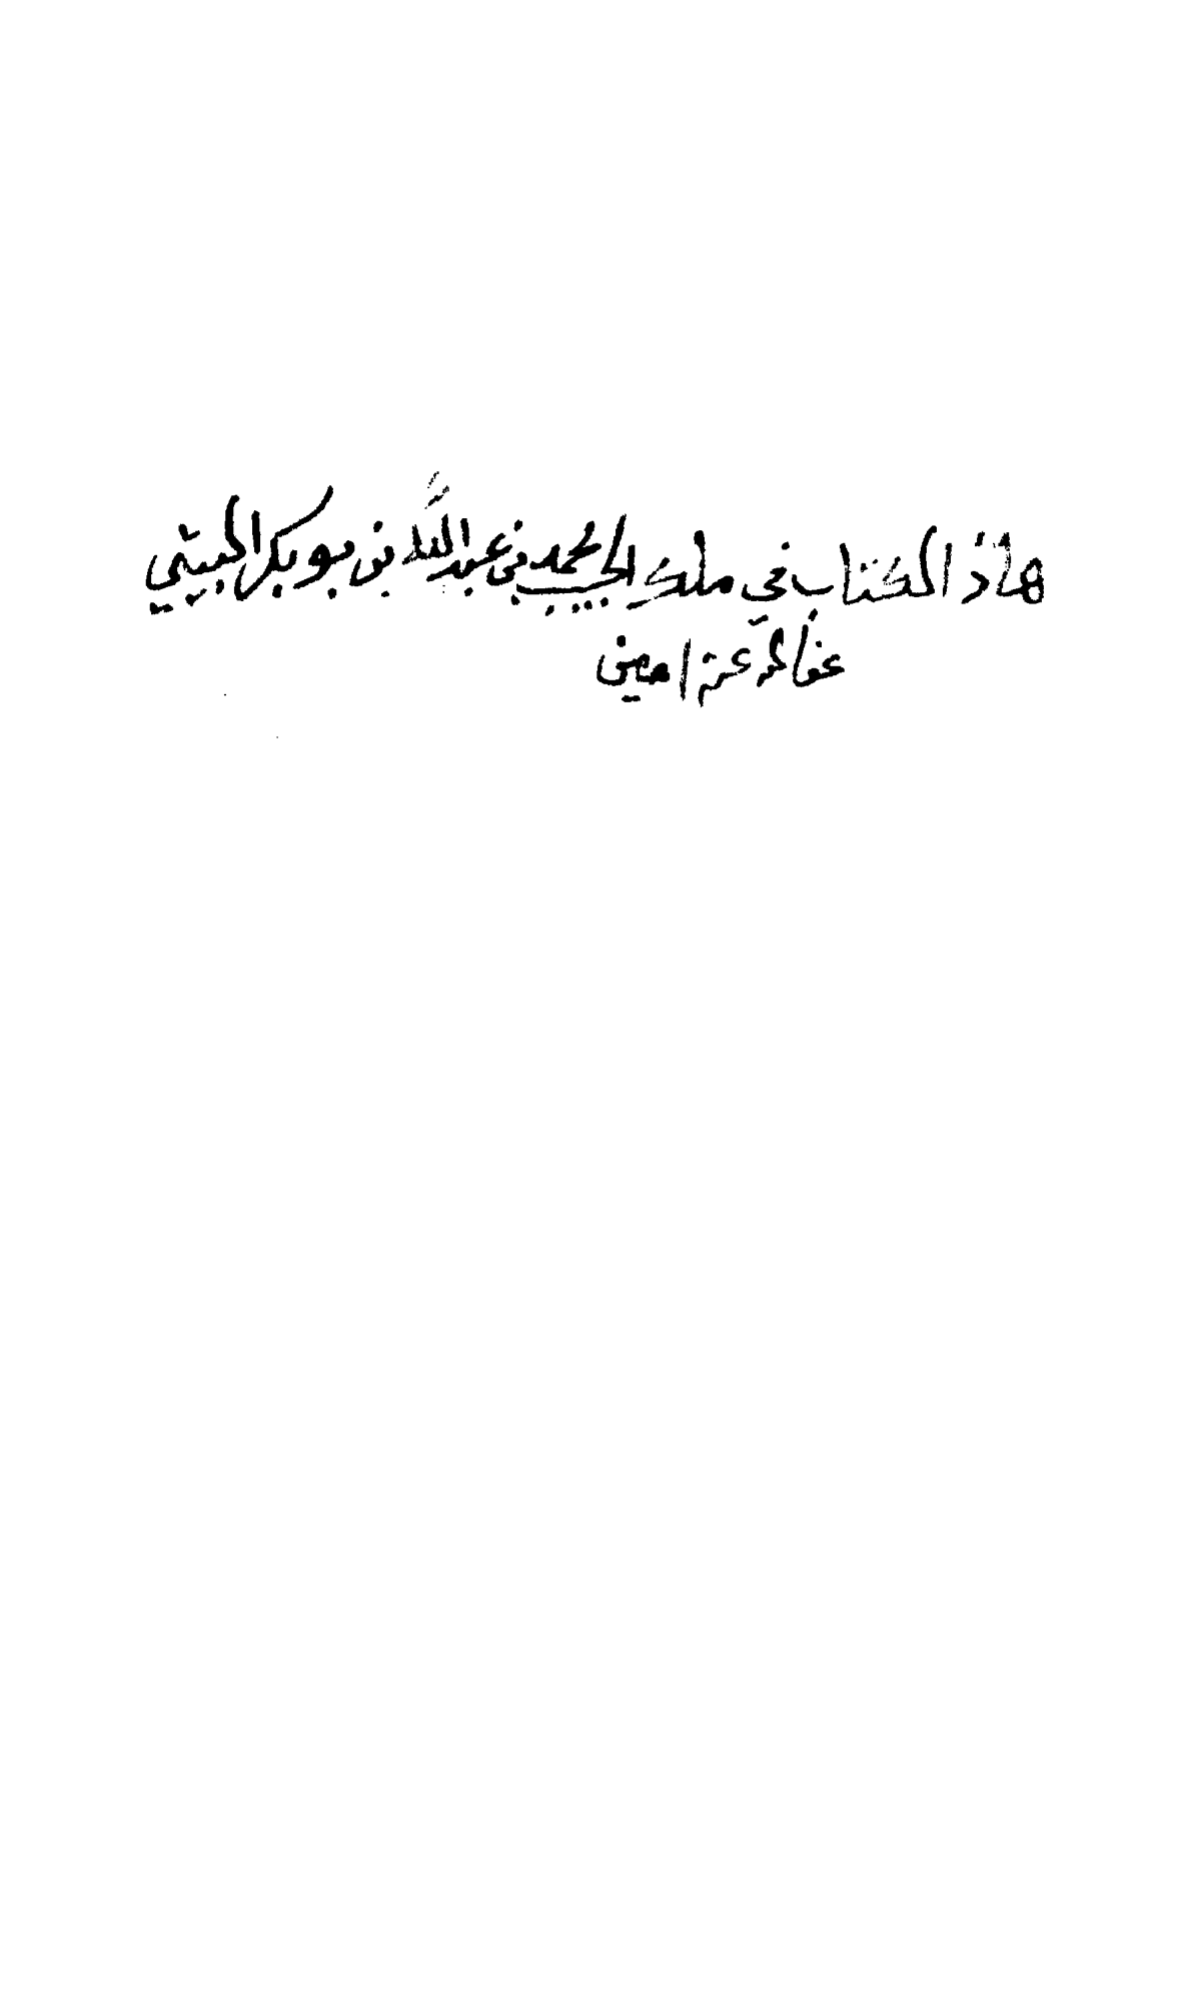 هاذا الكتاب في ملك الحبيب محمد بن عبد الله بن بوبكر الهيبتي
عفا الله عنه امين